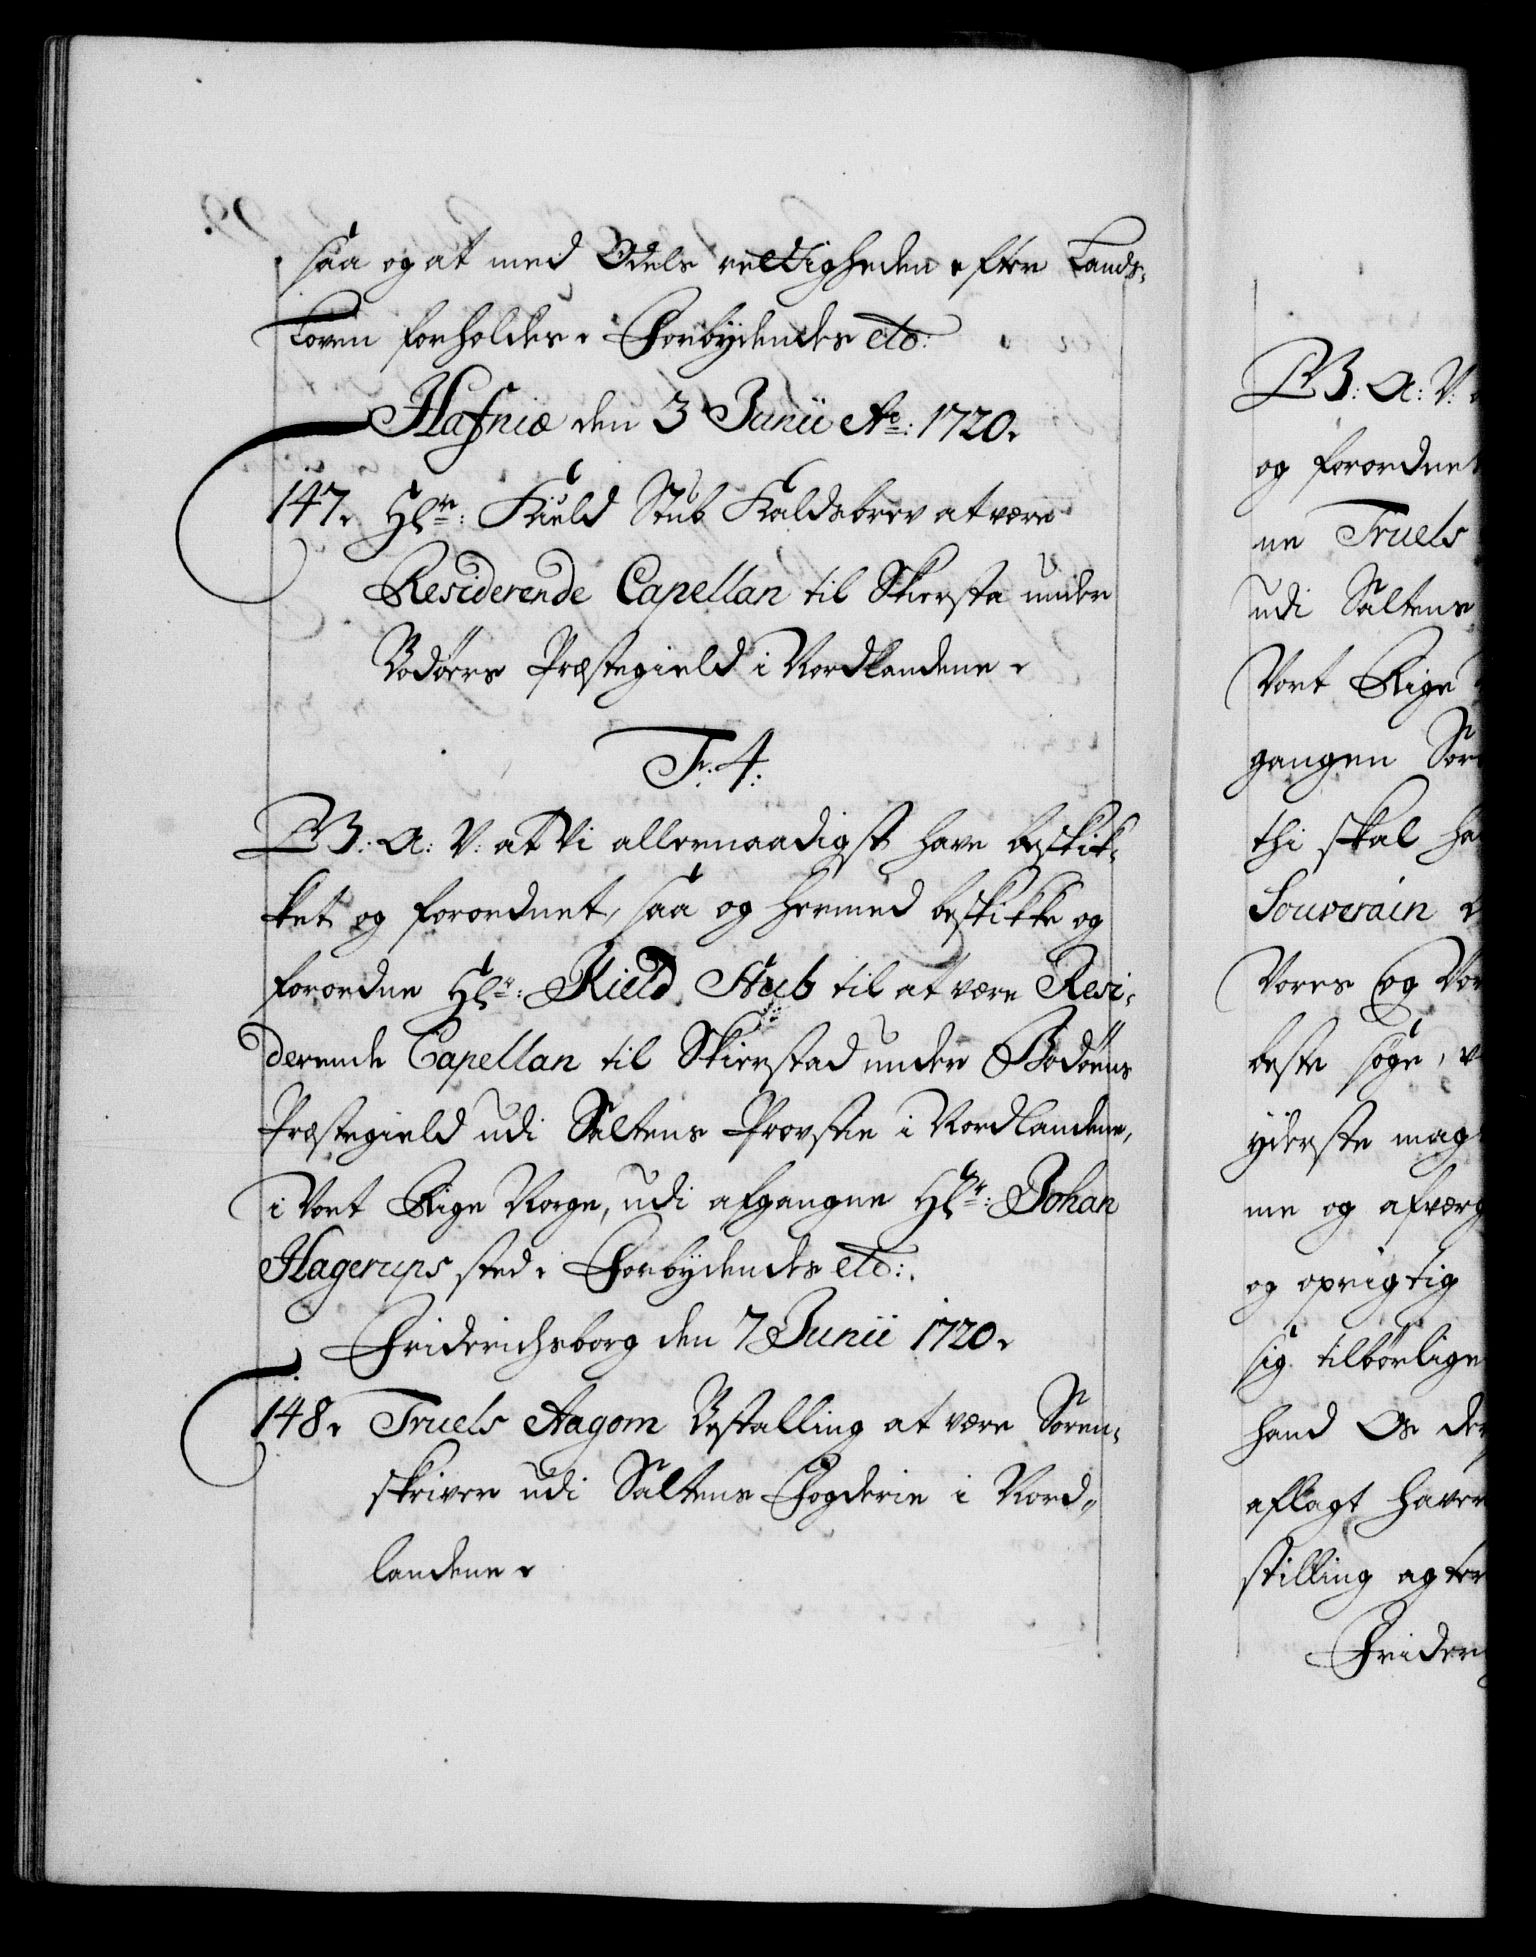 saa og at med Odels rettigheden efter Lands-
Loven forholdes. Forbydendes etc:
Hafniæ den 3 Junii Ao: 1720.
147. Hr: Kield Stub Kaldsbrev at være
Residerende Capellan til Skiersta under
Bodöens Præstegield i Nordlandene.
Fr. 4.
G: A: V: at Vi allernaadigst have beskik-
ket og forordnet, saa og hermed beskikke og
forordne Hr: Kield Stub til at være Resi-
derende Capellan til Skierstad under Bodöens
Præstegield udi Saltens Provstie i Nordlandene,
i Vort Rige Norge, udi afgangne Hr: Johan
Hagerups sted. Forbydendes etc:.
Friderichsborg den 7 Junii 1720.
148. Truels Aagom Bestalling at være Soren-
skriver udi Saltens Fogderie i Nord-
landene.
G: A: V:
og forordnet
ne Truels
udi Saltens
Vort Rige
gangen Sor
thi skal ha
Souverain
Vores og Vor
beste søge, v
yderste mag
me og afværg
og oprigtig
sig tilbørlige
hand Os der
aflagt haver
stilling agter
Frider